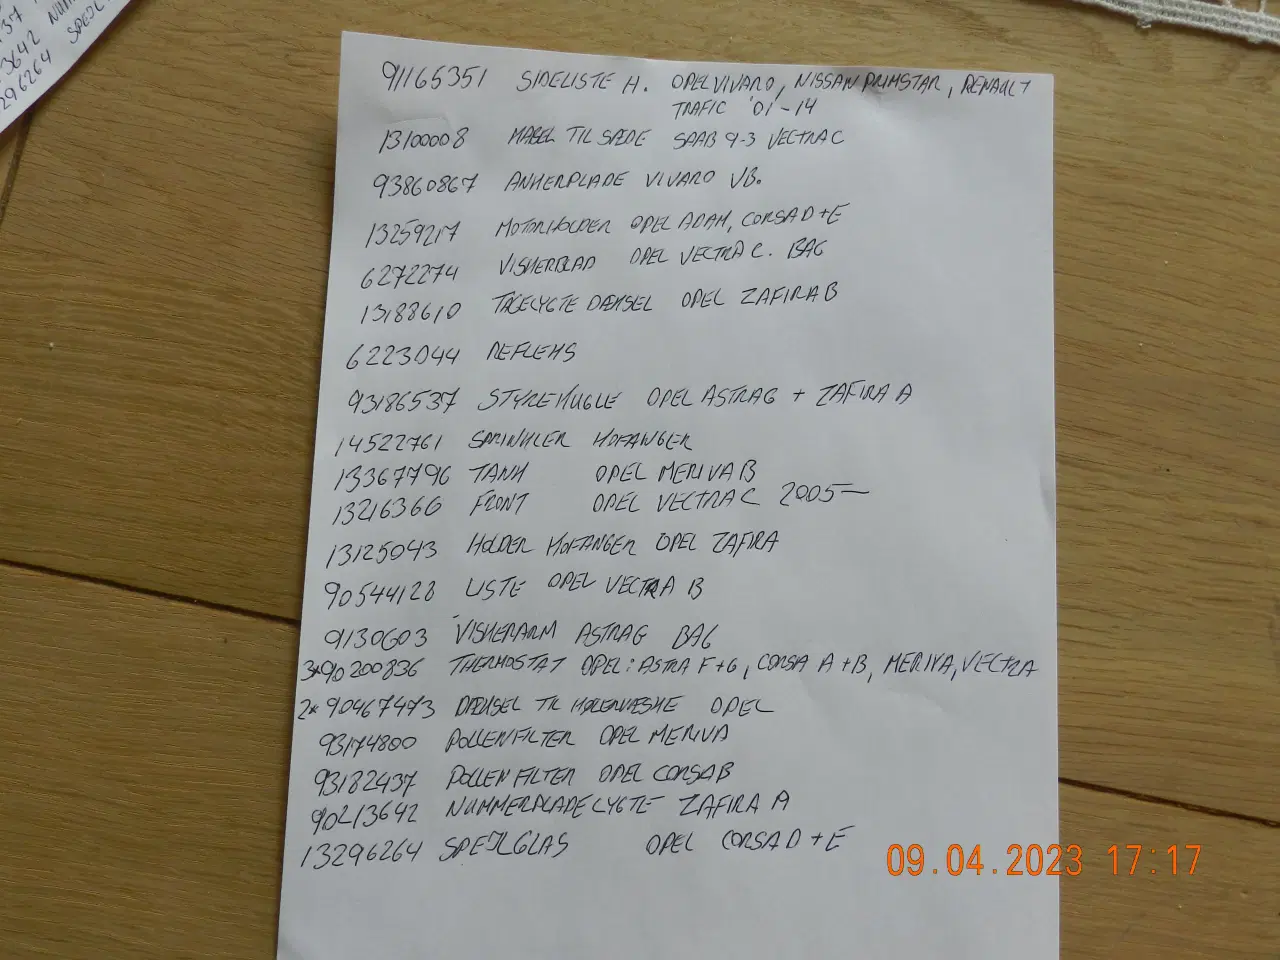 37
3642 NUM
296264 SPEJL
91165351 SIDELISTE H. OPEL VIVARO, NISSAN PRIMSTAR, RENAULT
TRAFIC '01-14
13100008 KABEL TIL SÆDE SAAB 9-3 VECTRA C
93860867 ANKERPLADE VIVARO VB.
13259217 MOTORHOLDER OPEL ADAM, CORSA D+E
6272274 VISKERBLAD OPEL VECTRA C. BAG
13188610 TÅGELYGTE DÆKSEL OPEL ZAFIRA B
6223044 REFLEKS
93186537 STYREKUGLE OPEL ASTRA G + ZAFIRA A
14522761 SPRINKLER KOFANGER
13367796 TANK OPEL MERIVA B
13216366 FRONT OPEL VECTRA C 2005-
13125043 HOLDER KOFANGER OPEL ZAFIRA
90544128 LISTE OPEL VECTRA B
9130603 VISKERARM ASTRA G BAG
3*90200836 THERMOSTAT OPEL: ASTRA F+G, CORSA A+B, MERIVA, VECTRA
2* 90467473 DÆKSEL TIL KØLERVÆSKE OPEL
93174800 POLLENFILTER OPEL MERIVA
93182437 POLLENFILTER OPEL CORSA B
90213642 NUMMERPLADELYGTE ZAFIRA A
13296264 SPEJLGLAS OPEL CORSA D+E
09.04.2023 17:17